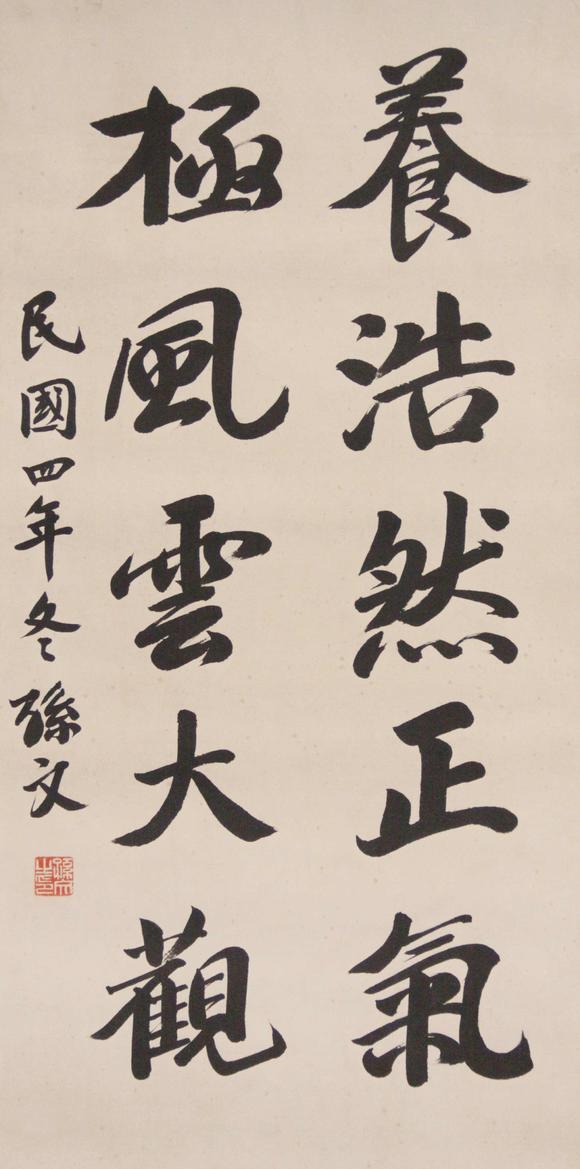 養浩然正氣
極風雲大觀
民國四年冬孫文
孫文之印